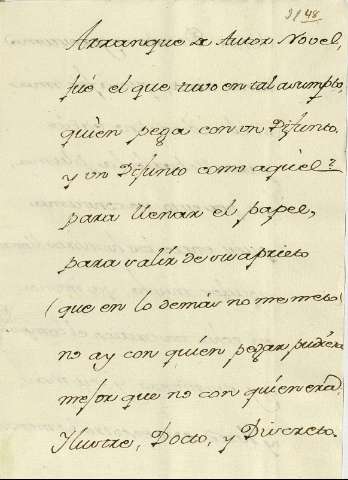 48
Arranque de Autor Novel,
fué el que tuvo en tal asumpto,
quièn pega con un Difunto.
y un Difunto como aquèl?
para llenar el papel,
para valìr de su aprieto
(que en lo demàs no me meto)
no ay con quièn pegar pudiera
mejor que no con quien era
Ilustre, Docto, y Discreto.